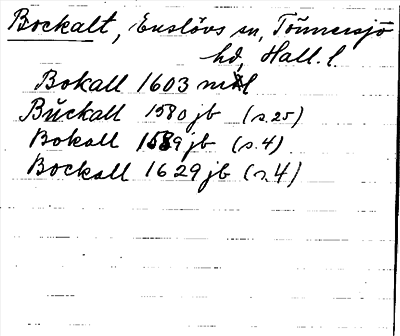 Bockalt, Enslövs sn, Tönnersjö
hd, Hall. l.
Bokall 1603 mtl
Bŭckall 1580 jb (s.25)
Bokall 1589 jb (s.4)
Bockall 1629 jb (s.4)